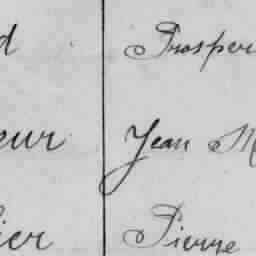 d Prosper
eur Jean M
ier Pierre